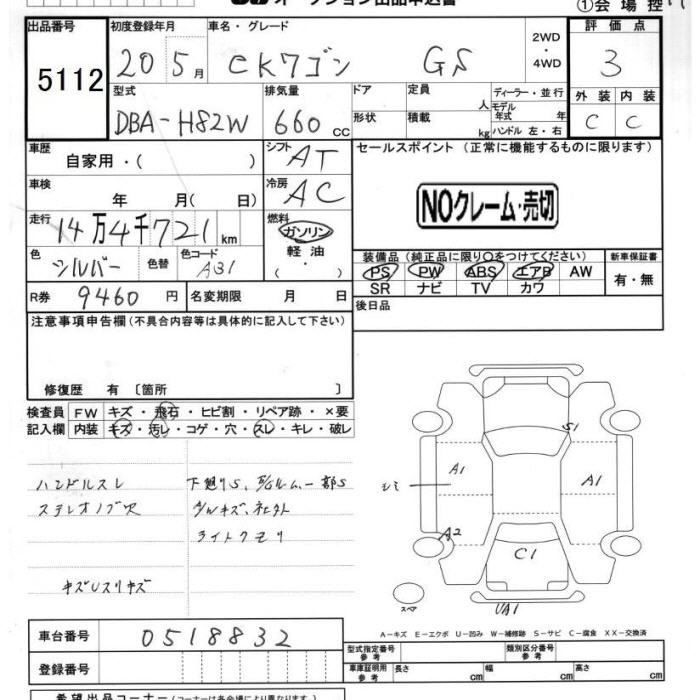 オークション出品申込書
①会場控
出品番号
5112
初度登録年月
20 5月
車名・グレード
CKワゴン GS
2WD
・
4WD
評価点
3
型式
DBA-H82W
排気量
660 cc
ドア
形状
定員
人
積載
kg
ディーラー・並行
モデル年式 年
ハンドル 左・右
外装
C
内装
C
車歴
自家用・( )
シフト
AT
セールスポイント (正常に機能するものに限ります)
車検
年 月( 日)
冷房
AC
NOクレーム・売切
走行
14万4千721km
燃料
ガソリン
軽油
( ・ )
色
シルバー
色替
色コード
A31
装備品(純正品に限り○をつけてください)
新車保証書
PS PW ABS エアB AW
SR ナビ TV カワ
有・無
R券
9460円
名変期限 月 日
後日品
注意事項申告欄(不具合内容等は具体的に記入して下さい)
修復歴 有 〔箇所 〕
検査員
記入欄
FW キズ・飛石・ヒビ割・リペア跡・×要
内装 キズ・汚レ・コゲ・穴・スレ・キレ・破レ
ハンドルスレ
ステレオノブ欠
キズUスリキズ
下廻りS、
一部S
ライトクモリ
S1
A1
A1
シミ
A2
C1
UA1
スペア
A-キズ E-エクボ U-凹み W-補修跡 S-サビ C-腐食 XX-交換済
車台番号
0518832
登録番号
型式指定番号
参考
類別区分番号
参考
車庫証明用
参考
長さ cm
幅 cm
高さ cm
希望出品コーナー(コーナーは各会場により異なります)